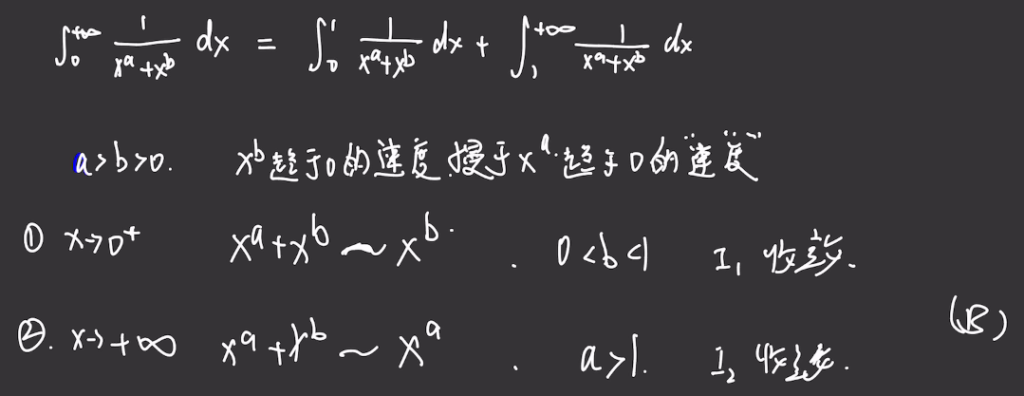 ∫₀^{+∞} 1/(x^a+x^b) dx = ∫₀^1 1/(x^a+x^b) dx + ∫₁^{+∞} 1/(x^a+x^b) dx
a>b>0. x^b趋于0的速度慢于x^a趋于0的速度
① x→0⁺ x^a+x^b ~ x^b. 0<b<1 I₁ 收敛.
②. x→+∞ x^a+x^b ~ x^a. a>1. I₂ 收敛. (B)